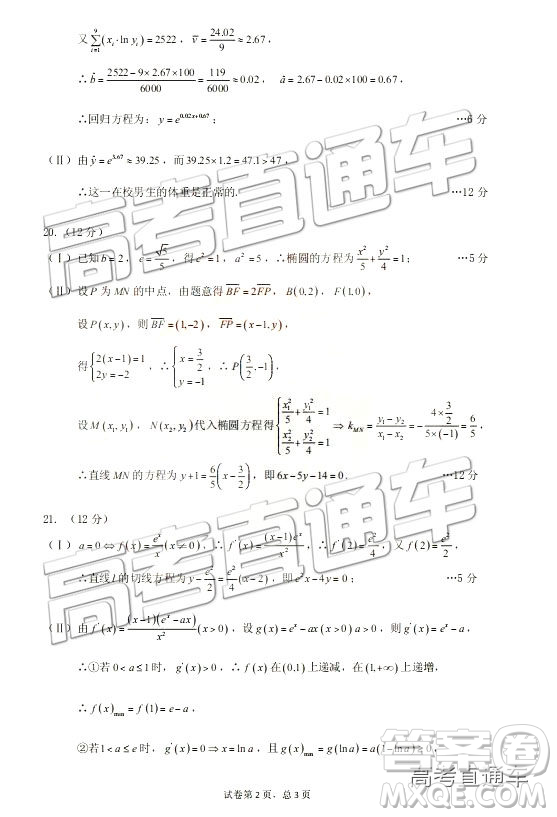 又 $\sum_{i=1}^{9}(x_i \cdot \ln y_i) = 2522$，$\overline{v} = \frac{24.02}{9} \approx 2.67$，
∴ $\hat{b} = \frac{2522 - 9 \times 2.67 \times 100}{6000} = \frac{119}{6000} \approx 0.02$，$\hat{a} = 2.67 - 0.02 \times 100 = 0.67$，
∴回归方程为：$y = e^{0.02x+0.67}$； …6 分
（Ⅱ）由 $\hat{y} = e^{3.67} \approx 39.25$，而 $39.25 \times 1.2 = 47.1 > 47$，
∴这一在校男生的体重是正常的. …12 分
20.（12 分）
（Ⅰ）已知 $b = 2$，$e = \frac{\sqrt{5}}{5}$，得 $c^2 = 1$，$a^2 = 5$，∴椭圆的方程为 $\frac{x^2}{5} + \frac{y^2}{4} = 1$； …5 分
（Ⅱ）设 P 为 MN 的中点，由题意得 $\overline{BF} = 2\overline{FP}$，$B(0,2)$，$F(1,0)$，
设 $P(x,y)$，则 $\overline{BF} = (1,-2)$，$\overline{FP} = (x-1,y)$，
得 $\begin{cases} 2(x-1) = 1 \\ 2y = -2 \end{cases}$，∴ $\begin{cases} x = \frac{3}{2} \\ y = -1 \end{cases}$，∴ $P\left(\frac{3}{2},-1\right)$，
设 $M(x_1,y_1)$，$N(x_2,y_2)$代入椭圆方程得 $\begin{cases} \frac{x_1^2}{5} + \frac{y_1^2}{4} = 1 \\ \frac{x_2^2}{5} + \frac{y_2^2}{4} = 1 \end{cases} \Rightarrow k_{MN} = \frac{y_1-y_2}{x_1-x_2} = -\frac{4 \times \frac{3}{2}}{5 \times (-1)} = \frac{6}{5}$，
∴直线 MN 的方程为 $y+1 = \frac{6}{5}\left(x-\frac{3}{2}\right)$，即 $6x-5y-14=0$. …12 分
21. （12 分）
（Ⅰ）$a = 0 \Leftrightarrow f(x) = \frac{e^x}{x}(x \neq 0)$，∴ $f'(x) = \frac{(x-1)e^x}{x^2}$，∴ $f'(2) = \frac{e^2}{4}$，又 $f(2) = \frac{e^2}{2}$，
∴直线 l 的切线方程为 $y - \frac{e^2}{2} = \frac{e^2}{4}(x-2)$，即 $e^2x - 4y = 0$； …5 分
（Ⅱ）由 $f'(x) = \frac{(x-1)(e^x-ax)}{x^2}(x>0)$，设 $g(x) = e^x - ax(x>0,a>0)$，则 $g'(x) = e^x - a$，
∴①若 $0<a \le 1$ 时，$g'(x)>0$，∴ $f(x)$ 在 $(0,1)$ 上递减，在 $(1,+\infty)$ 上递增，
∴ $f(x)_{\min} = f(1) = e - a$，
②若 $1<a \le e$ 时，$g'(x) = 0 \Rightarrow x = \ln a$，且 $g(x)_{\min} = g(\ln a) = a(1-\ln a) \ge 0$，
试卷第 2 页，总 3 页
高考直通车
高考直通车
高考直通车
答案圈
高考直通车